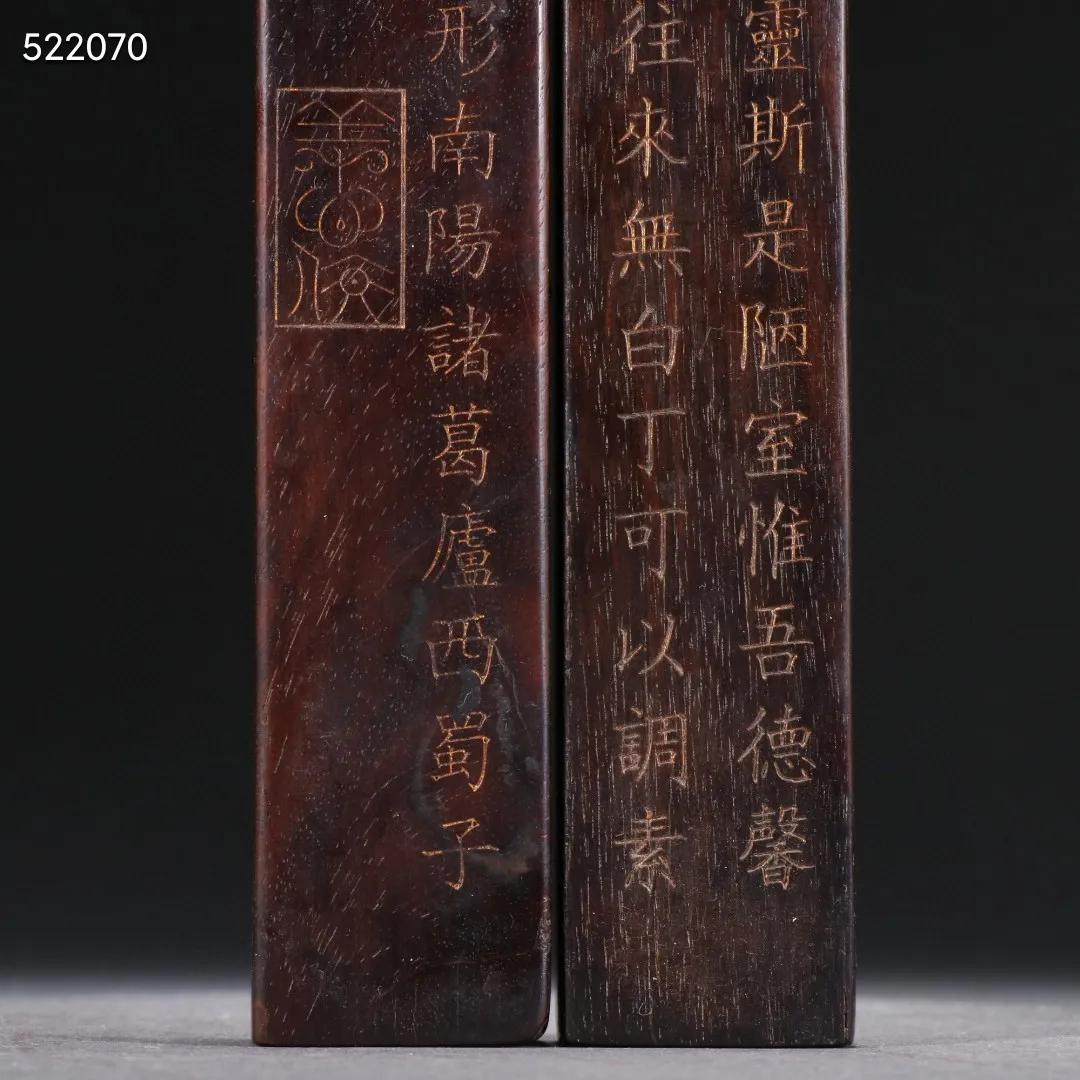 522070
靈斯是陋室惟吾德馨
往來無白丁可以調素
形南陽諸葛廬西蜀子